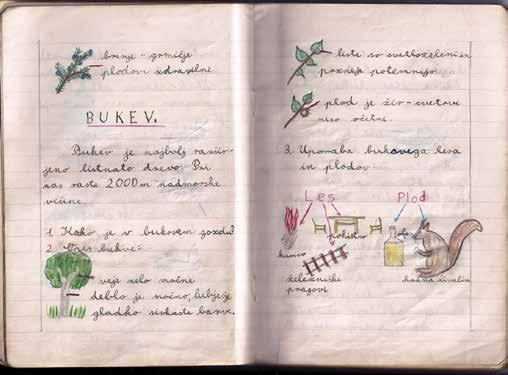 brinje - grmičje
plodovi zdravilni
BUKEV.
Bukev je najbolj razšir-
jeno listnato drevo. Pri
nas raste 2000 m nadmorske
višine.
1. Kako je v bukovem gozdu?
2. Opis bukve:
veje zelo močne
deblo je močno, lubje je
gladko sivkaste barve.
listi so svetlozeleni in
pozneje potemnijo
plod je žir - cvetovi
niso očitni.
3. Uporaba bukovega lesa
in plodov:
Les Plod
pohištvo olje
kurivo
železniški
pragovi
hrana živalim